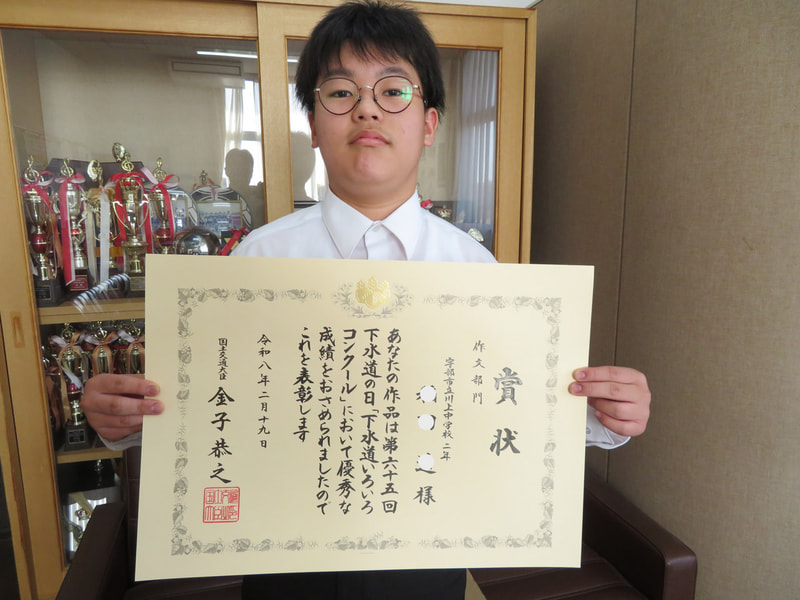 賞状
作文部門
宇部市立川上中学校 二年
様
あなたの作品は第六十五回
下水道の日「下水道いろいろ
コンクール」において優秀な
成績をおさめられましたので
これを表彰します
令和八年二月十九日
国土交通大臣 金子恭之